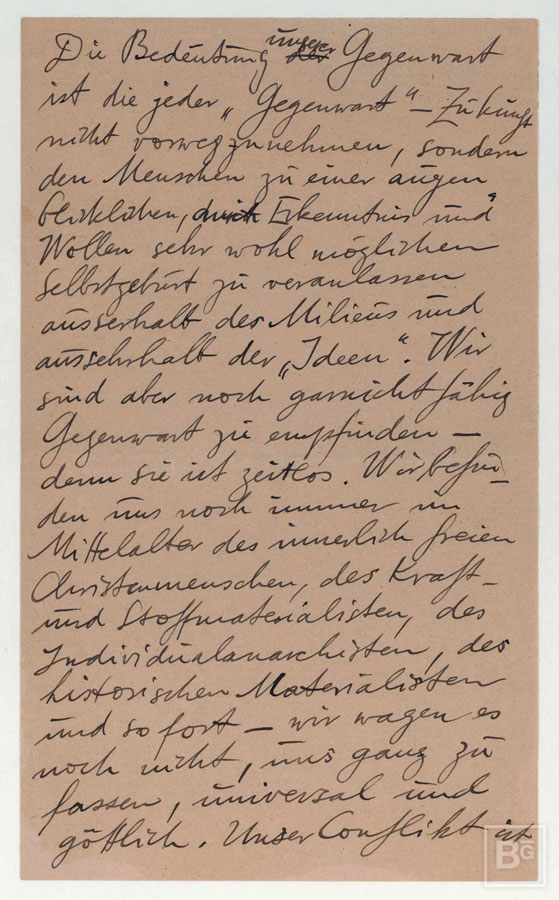 Die Bedeutung unserer Gegenwart
ist die jeder „Gegenwart“ – Zukunft
nicht vorwegzunehmen, sondern
den Menschen zu einer augen
blicklichen, durch Erkenntnis und
Wollen sehr wohl möglichen
Selbstgeburt zu veranlassen
ausserhalb des Milieus und
ausserhalb der „Ideen“. Wir
sind aber noch garnicht fähig
Gegenwart zu empfinden –
denn sie ist zeitlos. Wir befin-
den uns noch immer im
Mittelalter des innerlich freien
Christenmenschen, des Kraft-
und Stoffmaterialisten, des
Individualanarchisten, des
historischen Materialisten
und so fort – wir wagen es
noch nicht, uns ganz zu
fassen, universal und
göttlich. Unser Conflikt ist
BG